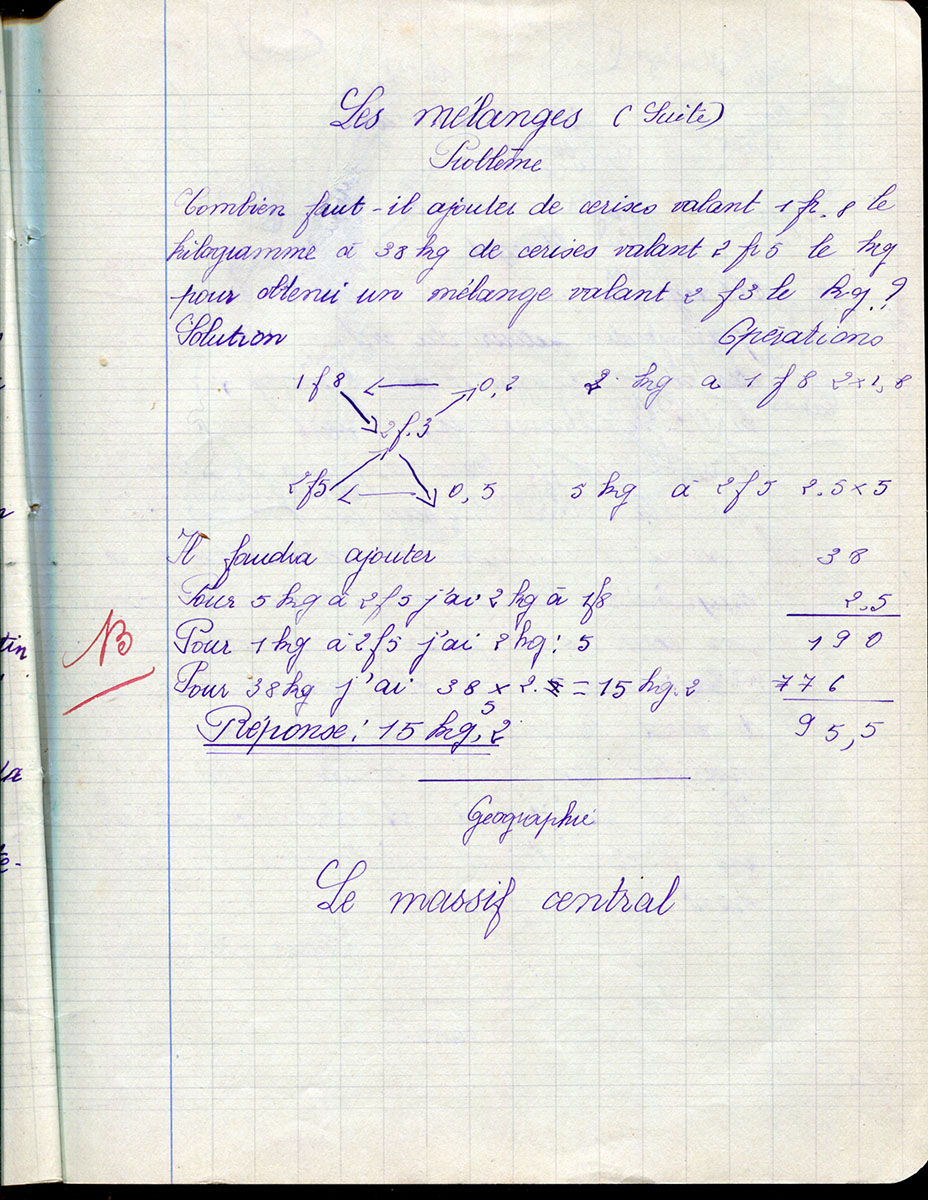 Les mélanges (Suite)
Problème
Combien faut-il ajouter de cerises valant 1 fr. 8 le
kilogramme à 38 kg de cerises valant 2 fr 5 le kg
pour obtenir un mélange valant 2 f 3 le kg.?
Solution Opérations
1 f 8 0,2 2 kg à 1 f 8 2 x 1,8
2 f. 3
2 f 5 0,5 5 kg à 2 f 5 2.5 x 5
Il faudra ajouter 38
Pour 5 kg à 2 f 5 j'ai 2 kg à 1 f 8 2,5
Pour 1 kg à 2 f 5 j'ai 2 kg : 5 190
Pour 38 kg j'ai 38 x 2. = 15 kg. 2 776
5
Réponse : 15 kg, 2 95,5
B
Géographie
Le massif central
tin
la